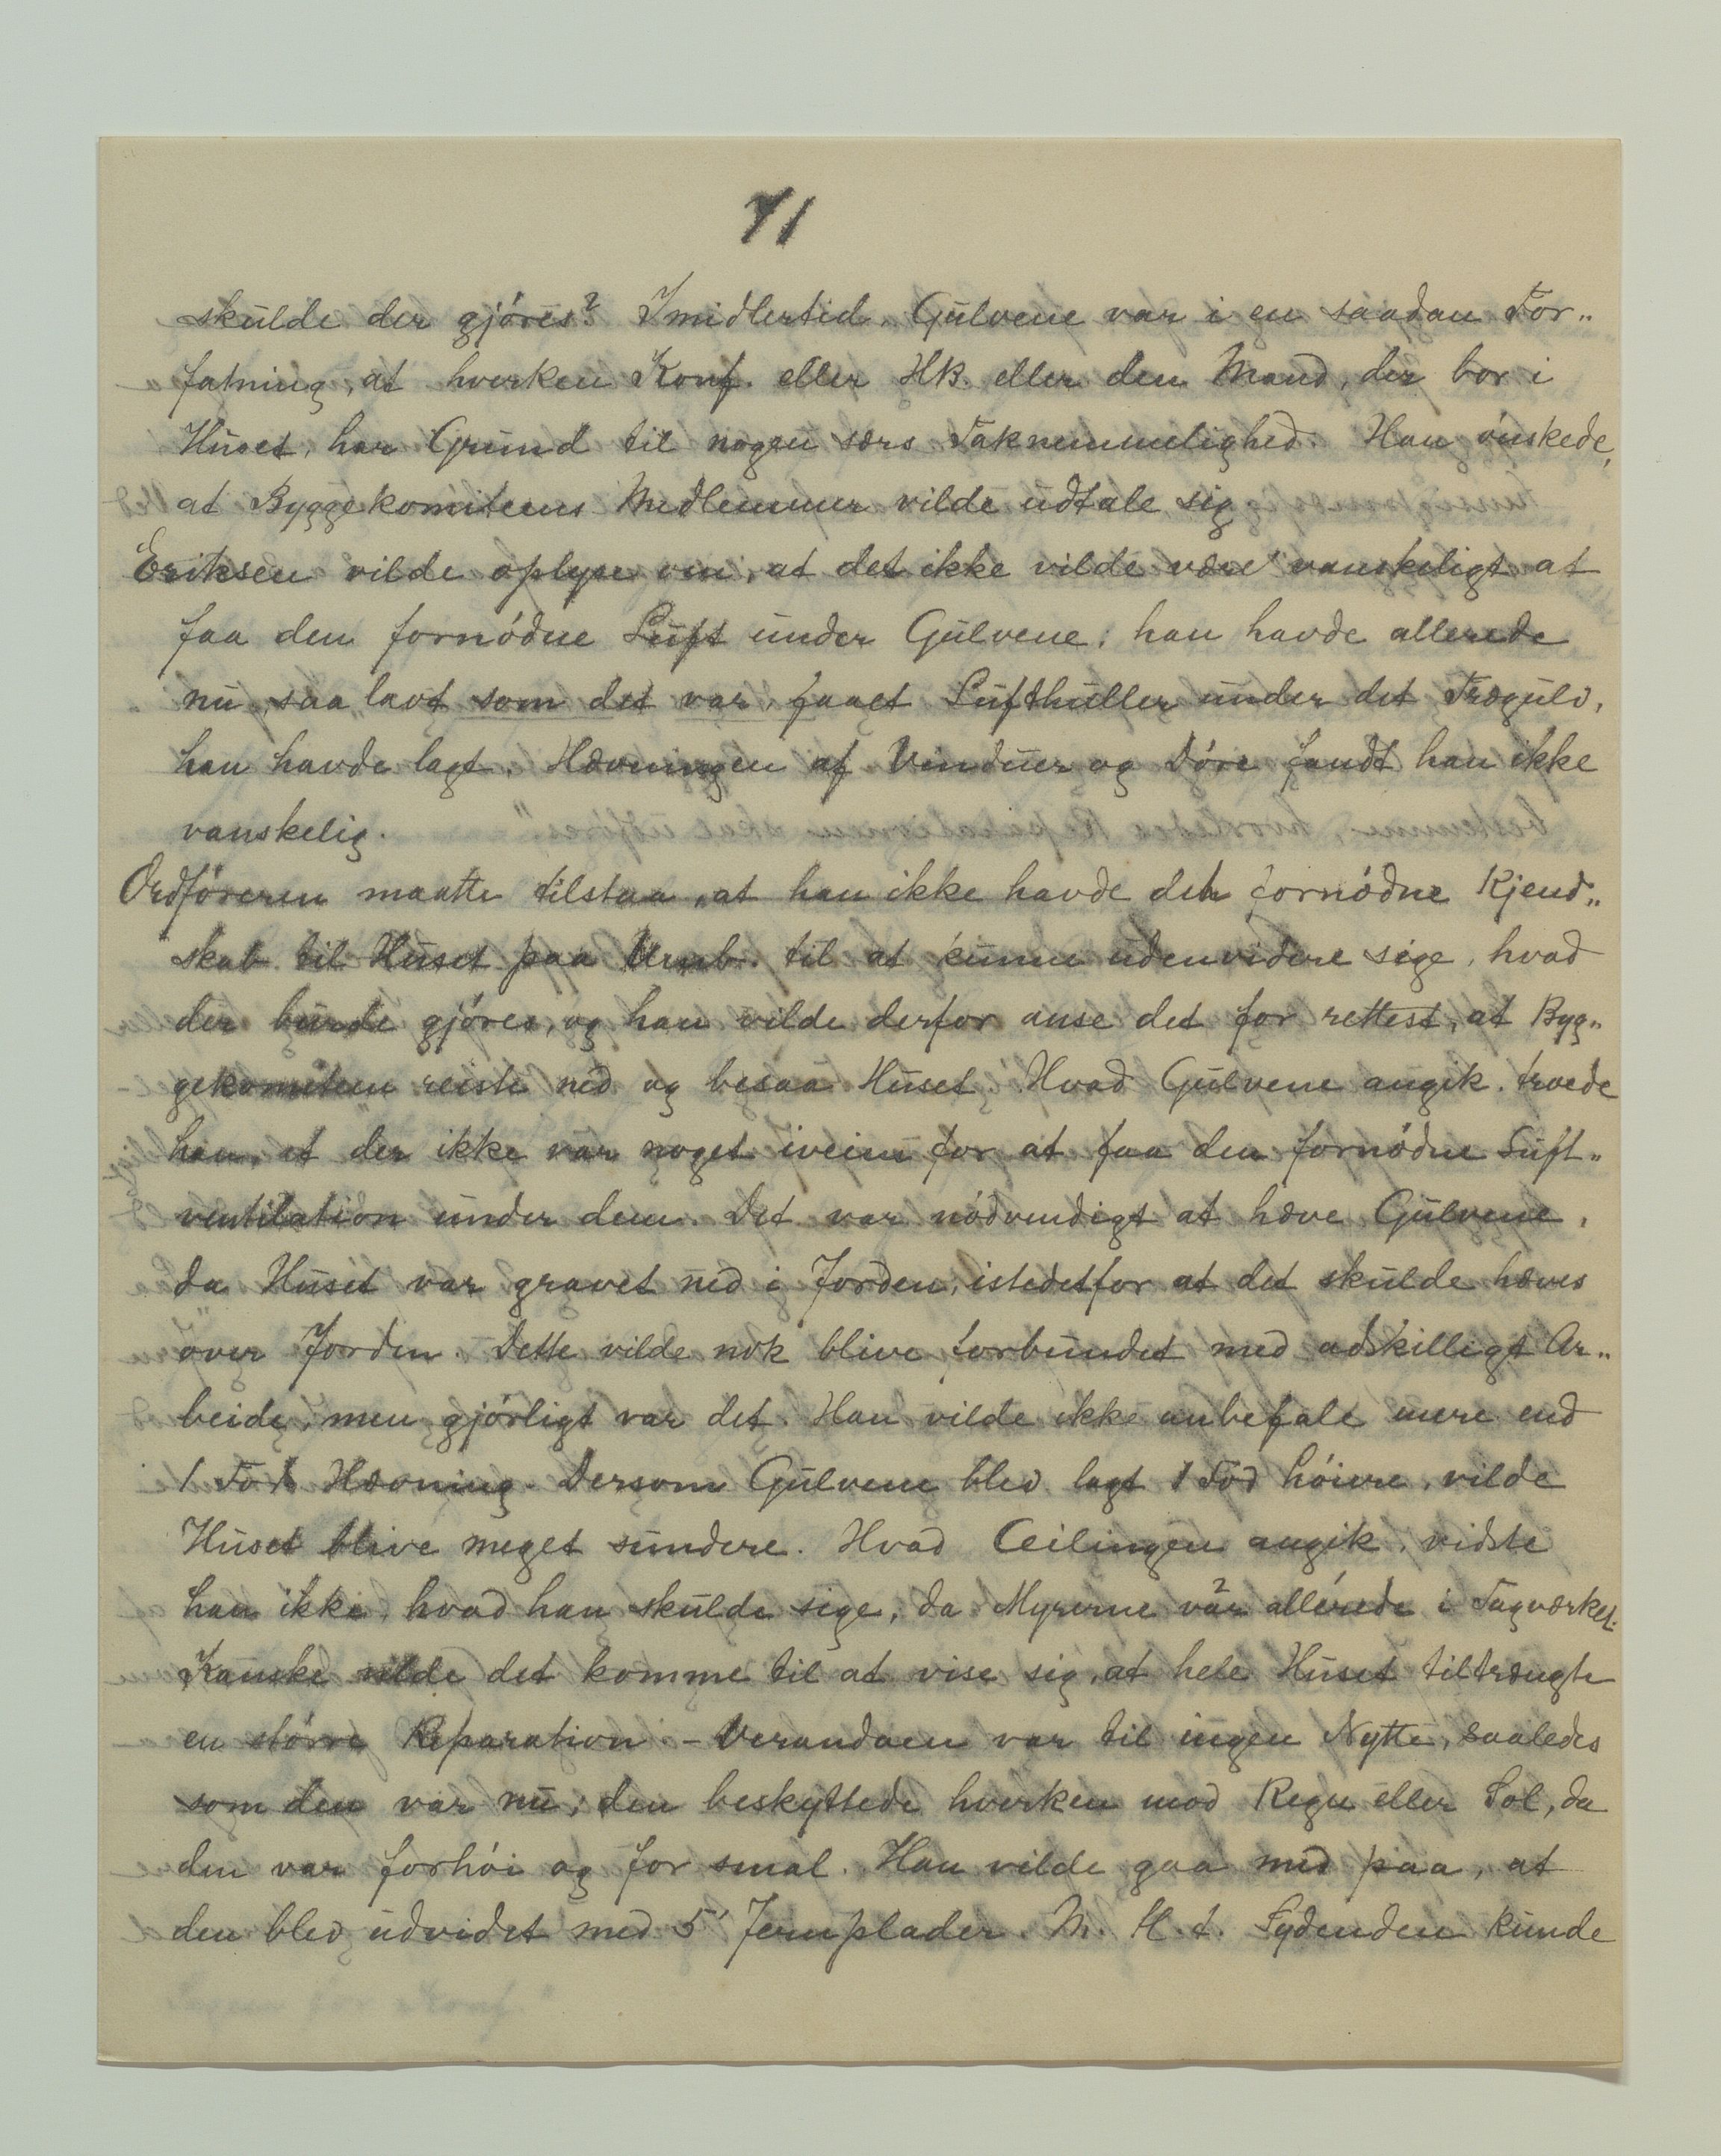 71
skulde der gjöres? Imidlertid, Gulvene var i en saadan For„
fatning, at hverken Konf. eller HB. eller den Mand, der bor i
Huset, har Grund til nogen særs Taknemmelighed. Han önskede,
at Byggekomiteens Medlemmer vilde udtale sig
Eriksen vilde oplyse om, at det ikke vilde være vanskeligt at
faa den fornödne Luft under Gulvene; han havde allerede
nu, saa lavt som det var, faaet Lufthuller under det Trægulv,
han havde lagt. Hævningen af Vinduer og Döre fandt han ikke
vanskelig.
Ordföreren maatte tilstaa, at han ikke havde den fornödne Kjend„
skab til Huset paa Umb. til at kunne udenvidere sige, hvad
der burde gjöres, og han vilde derfor anse det for rettest, at Byg„
gekomiteen reiste ned og besaa Huset. Hvad Gulvene angik, troede
han, at der ikke var noget iveien for at faa den fornödne Luft„
ventilation under dem. Det var nödvendigt at hæve Gulvene,
da Huset var gravet ned i Jorden, istedetfor at det skulde hæves
over Jorden. Dette vilde nok blive forbundet med adskilligt Ar„
beide, men gjörligt var det. Han vilde ikke anbefale mere end
1 Fods Hævning. Dersom Gulvene blev lagt 1 Fod höiere, vilde
Huset blive meget sundere. Hvad Ceilingen angik, vidste
han ikke, hvad han skulde sige, da Myrerne var allerede i Tagværket.
Kanske vilde det komme til at vise sig, at hele Huset tiltrængte
en större Reparation. - Verandaen var til ingen Nytte, saaledes
som den var nu; den beskyttede hverken mod Regn eller Sol, da
den var forhöi og for smal. Han vilde gaa med paa, at
den blev udvidet med 5' Jernplader. M. H. t. Sydenden kunde